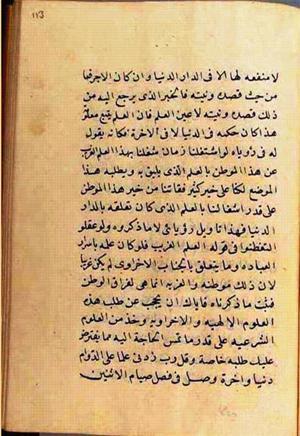 ١١٣
لا منفعه لها الا فى الدار الدنيا وان كان الاجر فيها
من حيث قصده ونيته فالخير الذى يرجع اليه من
ذلك قصده ونيته لا عين العلم فان العلم يتبع معلومه
هذا كان حكمه فى الدنيا لا فى الاخرة فكانه يقول
له فى رؤياه لو اشتغلنا زمان شغلنا بهذا العلم الغريب
عن هذا الموطن بالعلم الذى يليق به ويطلبه هذا
الموضع لكنا على خير كثير ففاتنا من خير هذا الموطن
على قدر اشتغالنا بالعلم الذى كان تعلقه بالدار
الدنيا فهذا تاويل رؤيا ئى لا ما ذكروه ولو عقلو
لتفطنوا فى قوله العلم الغريب فلو كان علمه باسرار
العباده وما يتعلق بالجناب الاخراوى لم يكن غريبا
لان ذلك موطنه والغربه انما هى لفراق الوطن
فثبت ما ذكرناه فاياك ان تحجب عن طلب هذه
العلوم الالهيه والاخراويه وخذ من العلوم
الشرعيه على قدر ما تمس الحاجة اليه مما يفترض
عليك طلبه خاصة وقل رب زدنى علما على الدوام
دنيا واخرة وصل فى فصل صيام الاثنين